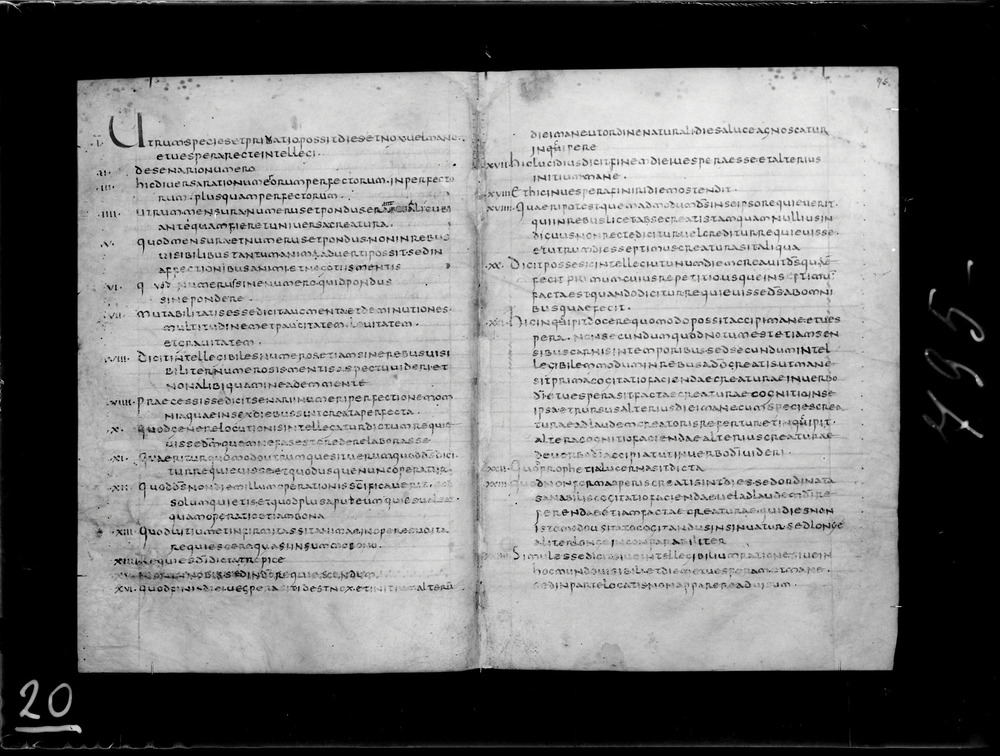 ·I· UTRUM SPECIES ET PRIVATIO POSSIT DIES ET NOX VEL MANE
ET UESPERA RECTE INTELLEGI·
·II· DE SENARIO NUMERO
·III· HIC DIUERSA RATIO NUMERORUM PERFECTORUM· INPERFECTO
RUM· PLUSQUAM PERFECTORUM·
·IIII· UTRUM MENSURA NUMERUS ET PONDUS ERA ALICUBI
ANTEQUAM FIERET UNIUERSA CREATURA·
·V· QUOD MENSURA ET NUMERUS ET PONDUS NON IN REBUS
UISIBILIBUS TANTUM ANIMADUERTI POSSIT SED IN
AFFECTIONIBUS ANIMI ET NEGOTIIS MENTIS
·VI· NUMERUS SINE NUMERO QUID PONDUS
SINE PONDERE·
·VII· MUTABILITATIS ESSE DICIT AUGMENTA ET DEMINUTIONES
MULTITUDINEM ET PAUCITATEM· LEUITATEM·
ET GRAUITATEM·
·VIII· DICIT INTELLEGIBILES NUMEROS ETIAM SINE REBUS UISI
BILITER NUMEROSIS MENTIS ASPECTU UIDERI ET
NON ALIBI QUAM IN EADEM MENTE
·VIIII· PRAECESSISSE DICIT SENARI NUMERI PERFECTIONEM OM
NIAQUAE IN SEX DIEBUS SUNT CREATA PERFECTA·
·X· QUOD GENERE LOCUTIONIS INTELLEGATUR DICTUM REQUIE
UISSE DM QUEM NEFAS EST CREDERE LABORASSE
·XI· QUAERITUR QUOMODO UTRUMQUE SIT UERUM QUOD DS DICI
TUR REQUIEUISSE ET QUOD USQUE NUNC OPERATUR·
·XII· QUOD DS NON DIEM ILLUM OPERATIONIS SCIFICAUERIT·
SOLUM QUIETIS ET QUOD PLUS APUD EUM QUIES UALEAT
QUAM OPERATIO ETIAM BONA
·XIII· QUOD UITIUM ET INFIRMITAS SIT ANIMAE IN OPERE SUO ITA
REQUIESCERE
·XIIII· REQUIES DI DICTA TROPICE
·XV· NOBIS ESSE IN DO REQUIESCENDUM
·XVI· QUOD FINIS DIEI UESPERA SIT ID EST NOX· ET INITIUM ALTERIUS
95
DIEI MANE UT ORDINE NATURALI DIES A LUCE AGNOSCATUR
INCIPERE
·XVII· HIC LUCIDIUS DICIT FINEM DIEI UESPERA ESSE ET ALTERIUS
INITIUM MANE·
·XVIII· ET HIC IN UESPERA FINIRI DIEM OSTENDIT·
·XVIIII· QUAERI POTEST QUEMADMODUM DS IN SE IPSO REQUIEUERIT·
QUI IN REBUS LICET AB SE CREATIS TAMQUAM NULLIUS IN
DIGUUS NON RECTE DICITUR UEL CREDITUR REQUIEUISSE·
ET UTRUM DIES SEPTIMUS CREATUR SIT ALIQUA
·XX· DICIT POSSE SIC INTELLEGI UT UNUM DIEM CREAUIT DS QUEM
FECIT PRIMUM CUIUS REPETITIO USQUE IN SEPTIMU
FACTA EST QUANDO DICITUR REQUIEUISSE DS AB OMNI
BUS QUAE FECIT·
·XXI· HIC INCIPIT DOCERE QUOMODO POSSIT ACCIPI MANE ET UES
PERA· NON SECUNDUM QUOD NOTUM EST ETIAM SEN
SIBUS CARNIS IN TEMPORIBUS SED SECUNDUM INTEL
LEGIBILEM MODUM IN REBUS A DO CREATIS UT MANE·
SIT PRIMA COGITATIO FACIENDAE CREATURAE IN UERBO
DI ET UESPERA SIT FACTAE CREATURAE COGNITIO IN SE
IPSA ET RURSUS ALTERIUS DIEI MANE CUM SPECIES CREA
TURAE AD LAUDEM CREATORIS REFERTUR ET INCIPIT·
ALTERA COGNITIO FACIENDAE ALTERIUS CREATURAE
DE UERBO DI ACCIPI AT UT IN UERBO DI UIDERI·
·XXII· QUO PROPHETIA LUCERNA SIT DICTA
·XXIII· QUOD NON FORMA OPERIS CREATI SIT DIES SED ORDINATA
SANABILIS COGITATIO FACIENDAE UEL AD LAUDE DI RE
FERENDAE ETIAM FACTAE CREATURAE· QUI DIES NON
ISTE MODO USITATO COGITANDUS INSINUATUR SED LONGE
ALITER LONGE INCONPARABILITER
SIMILE ESSE DICIT SIUE INTELLEGIBILIUM RATIONE SIUE IN
HOC MUNDO UISIBILI ET DIEM ET UESPERAM ET MANE·
SED IN PARTE LOCATIS NON APPARERE AD UISUM·
495
20